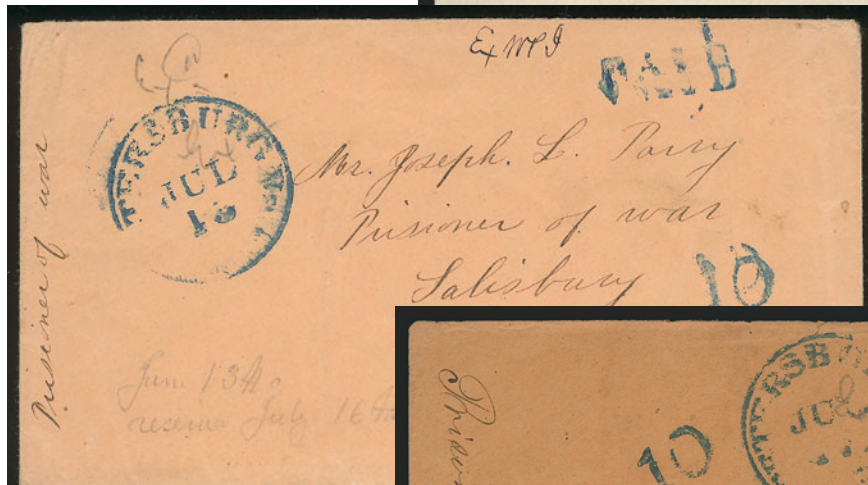 Ex WPI
PAID
TERSBURG Va.
JUL
15
Mr. Joseph. L. Parry
Prisioner of war
Salisbury
10
Prisioner of war
June 13th
receive July 16th
10
TTERSBU
JUL